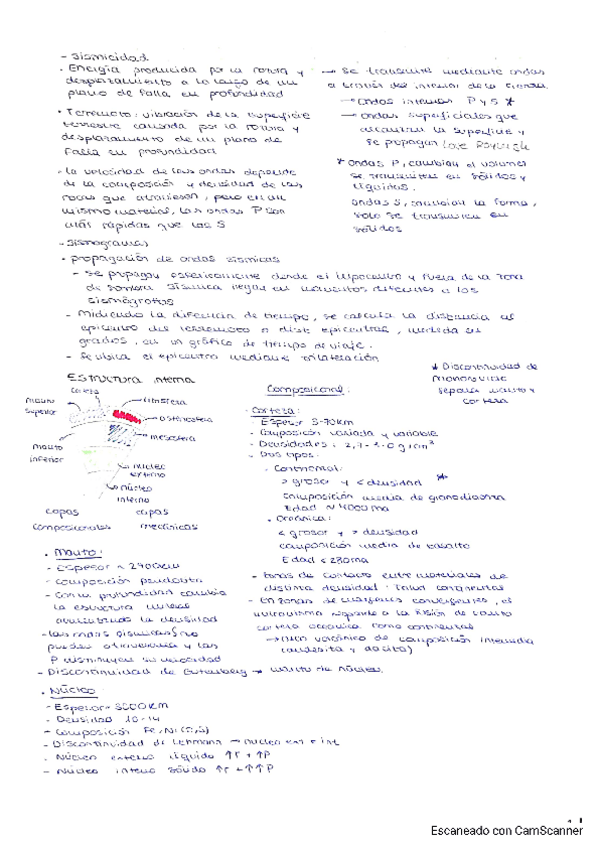 - Sismicidad
· Energía producida por la rotura y
desplazamiento a lo largo de un
plano de falla en profundidad
· Terremoto: vibración de la superficie
terrestre causada por la rotura y
desplazamiento de un plano de
falla en profundidad
- la velocidad de las ondas depende
de la composición y densidad de las
rocas que atraviesan, pero en un
mismo material, las ondas P son
más rápidas que las S
→ Se transmite mediante ondas
a través del interior de la tierra
→ ondas internas P y S *
→ ondas superficiales que
alcanzan la superficie y
se propagan Love Rayleigh
* ondas P, cambian el volumen
se transmiten en sólidos y
líquidos.
ondas S, cambian la forma,
solo se transmiten en
sólidos
- Sismogramas
· propagación de ondas sísmicas
- se propagan esféricamente desde el hipocentro y fuera de la zona
de sombra sísmica llegan en momentos diferentes a los
sismógrafos
- Midiendo la diferencia de tiempo, se calcula la distancia al
epicentro del terremoto o dist. epicentral, medida en
grados, en un gráfico de tiempo de viaje.
- Se ubica el epicentro mediante trilateración
Estructura interna
corteza
manto
superior
manto
inferior
litosfera
astenosfera
mesosfera
núcleo
externo
núcleo
interno
capas
composicionales
capas
mecánicas
Composicional:
* Discontinuidad de
Mohorovicic
separa manto y
corteza
· Corteza:
- Espesor 3-70km
- Composición variada y variable
- Densidades: 2,7-3.0 g/cm³
- Dos tipos:
· Continental:
> grosor y < densidad
composición media de granodiorita
Edad ≈ 4000ma
· Oceánica:
< grosor y > densidad
composición media de basalto
Edad < 280ma
- zonas de contacto entre materiales de
distinta densidad: talud continental
- En zonas de márgenes convergentes, el
vulcanismo responde a la fusión de tanto
corteza oceánica como continental
→ arco volcánico de composición intermedia
(andesita y dacita)
· Manto:
- Espesor ≈ 2900km
- composición peridotita
- Con la profundidad cambia
la estructura mineral
aumentando la densidad
- las ondas sísmicas S no
pueden atravesarlo y las
P disminuyen su velocidad
- Discontinuidad de Gutenberg → manto de núcleo.
· Núcleo
- Espesor ≈ 3500km
- Densidad 10-14
- composición Fe, Ni (Si, S)
- Discontinuidad de Lehmann → núcleo ext e int
· Núcleo externo líquido ↑T + ↑P
- Núcleo interno sólido ↑T + ↑↑P
Escaneado con CamScanner